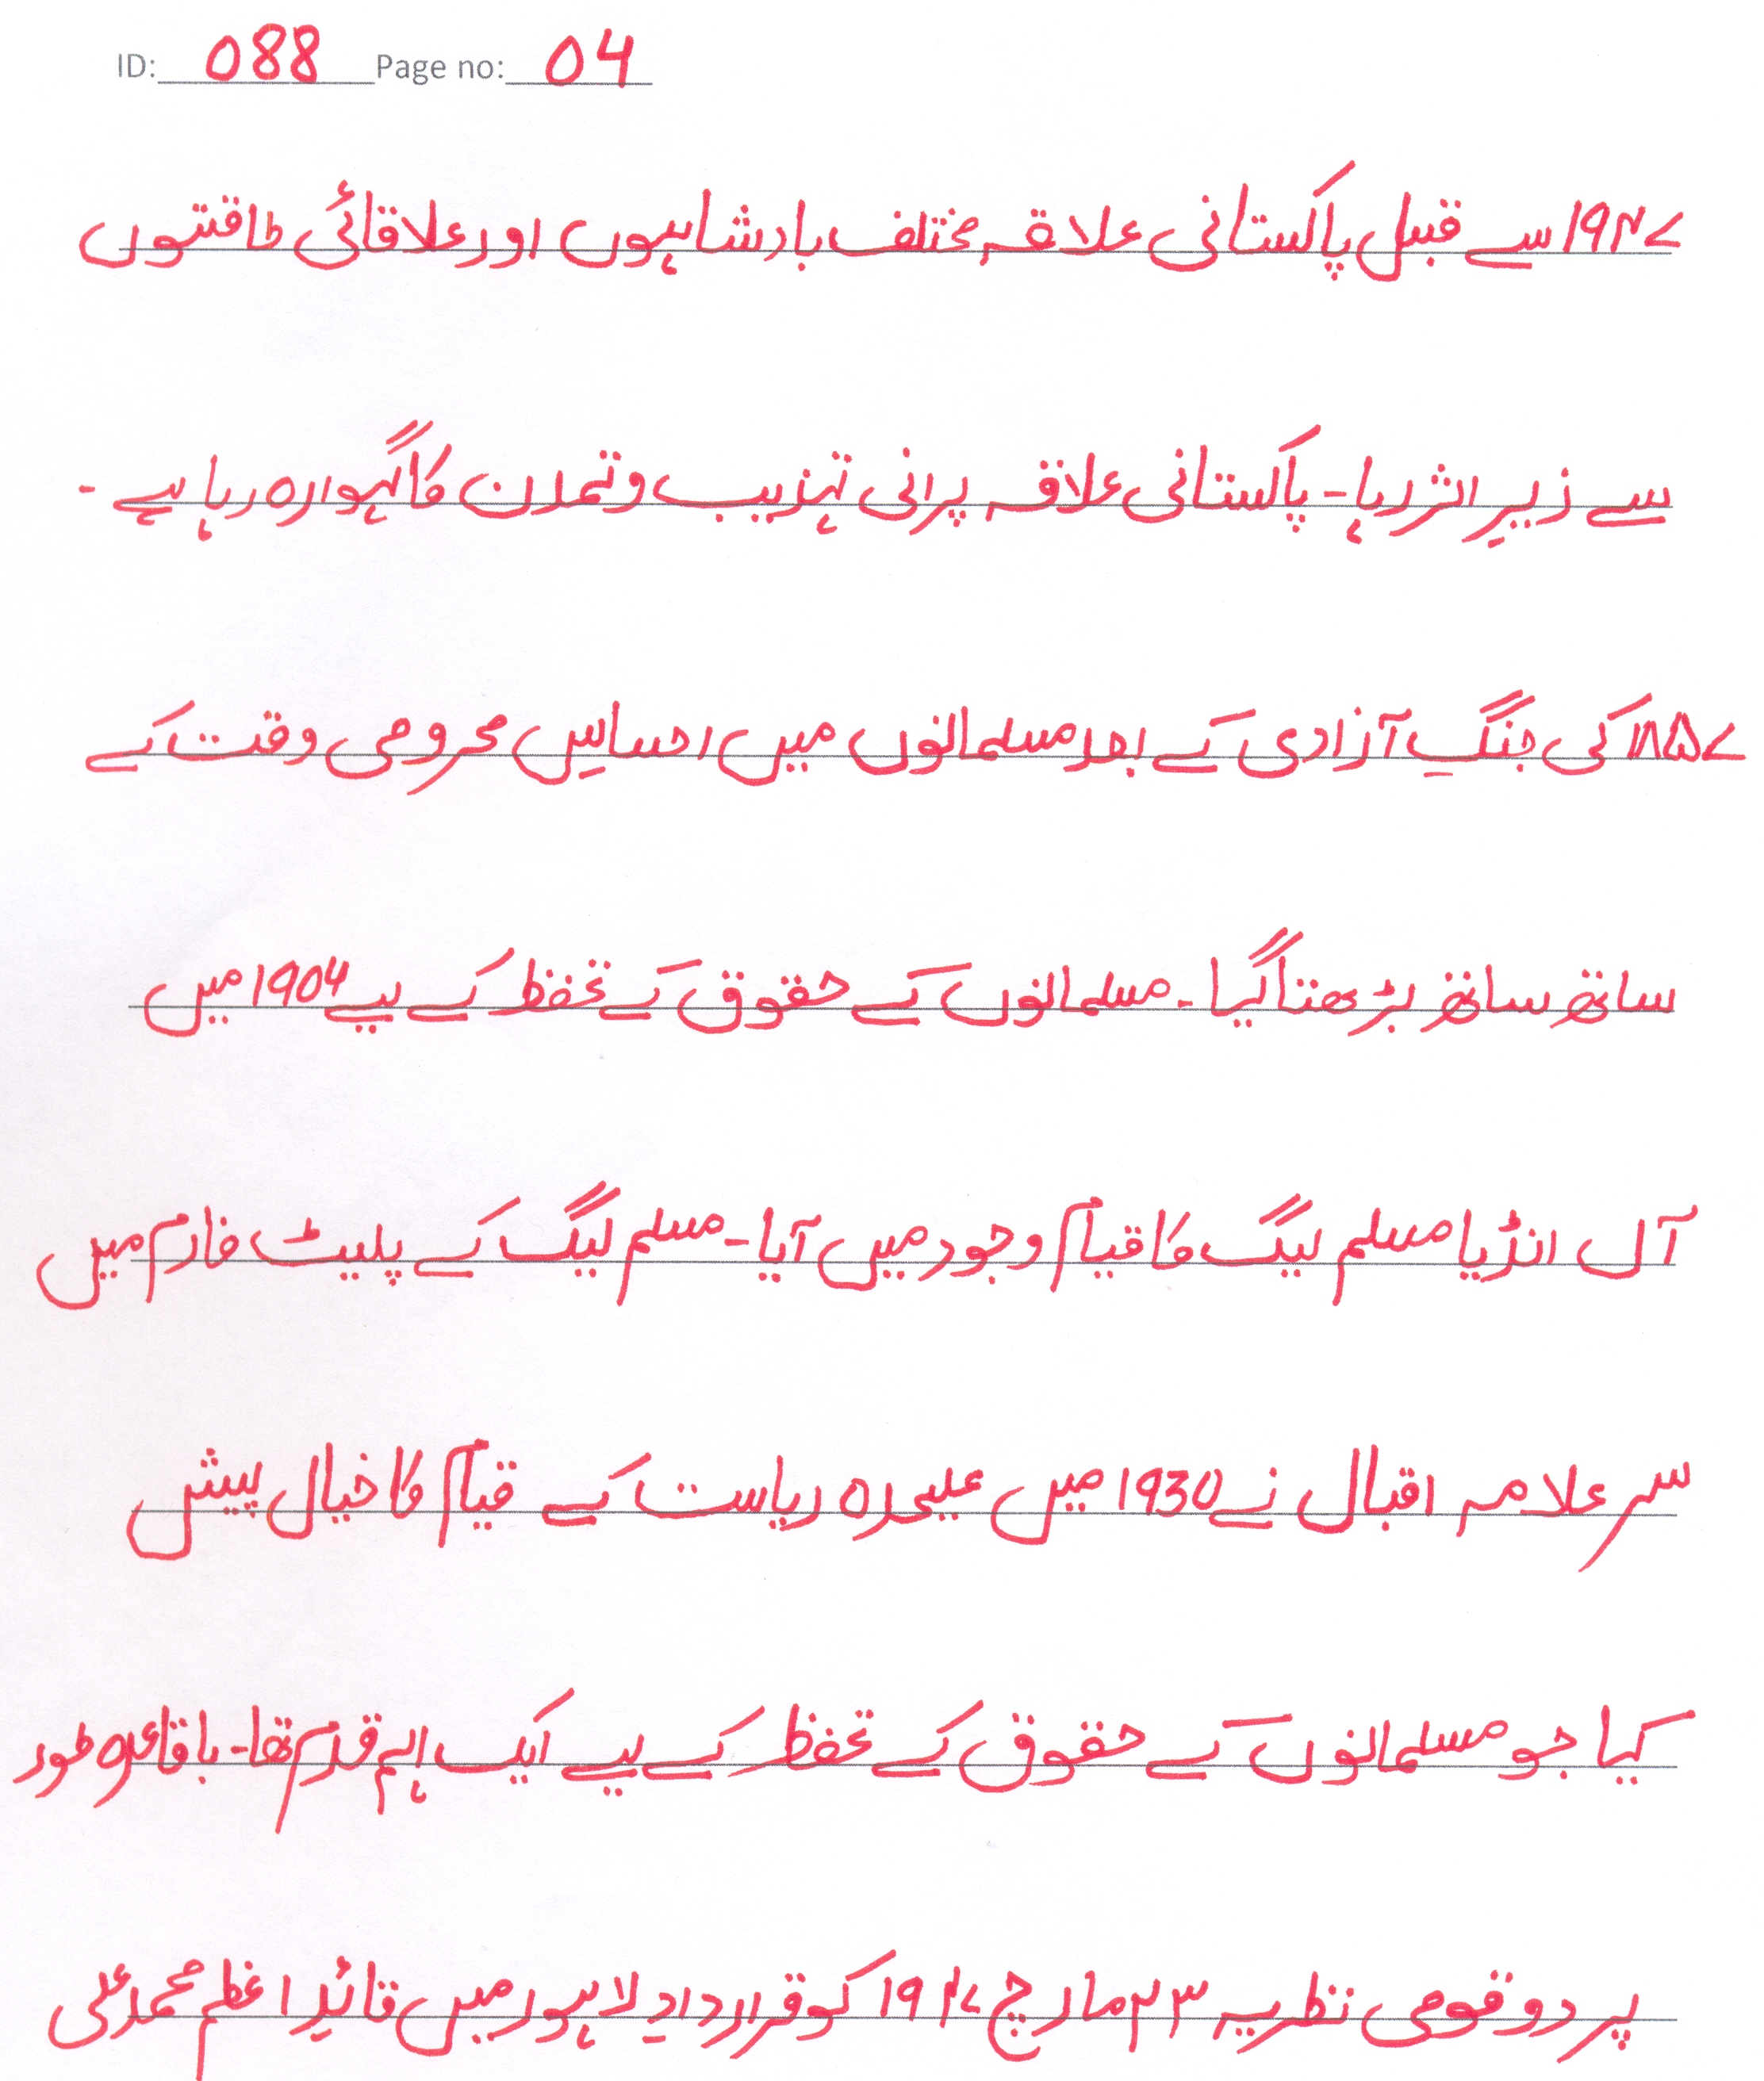 ID: 088 Page no: 04
۱۹۴۷ سے قبل پاکستانی علاقہ مختلف بادشاہوں اور علاقائی طاقتوں
سے زیرِ اثر رہا۔ پاکستانی علاقہ پرانی تہزیب و تمدن کا گہوارہ رہا ہے۔
۱۸۵۷ کی جنگِ آزادی کے بعد مسلمانوں میں احساسِ محرومی وقت کے
ساتھ ساتھ بڑھتا گیا۔ مسلمانوں کے حقوق کے تحفظ کے لیے 1904 میں
آل انڈیا مسلم لیگ کا قیام وجود میں آیا۔ مسلم لیگ کے پلیٹ فارم میں
سر علامہ اقبال نے 1930 میں علیحدہ ریاست کے قیام کا خیال پیش
کیا جو مسلمانوں کے حقوق کے تحفظ کے لیے ایک اہم قدم تھا۔ باقاعدہ طور
پر دو قومی نظریہ ۲۳ مارچ ۱۹۴۷ کو قراردادِ لاہور میں قائدِ اعظم محمد علی